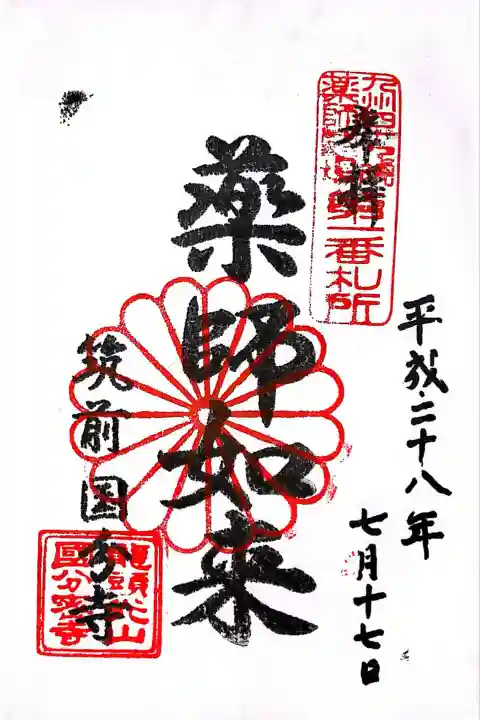 奉拝
九州四十九院
薬師霊場第一番札所
平成二十八年
七月十七日
薬師如来
筑前国分寺
龍頭光山
國分寺